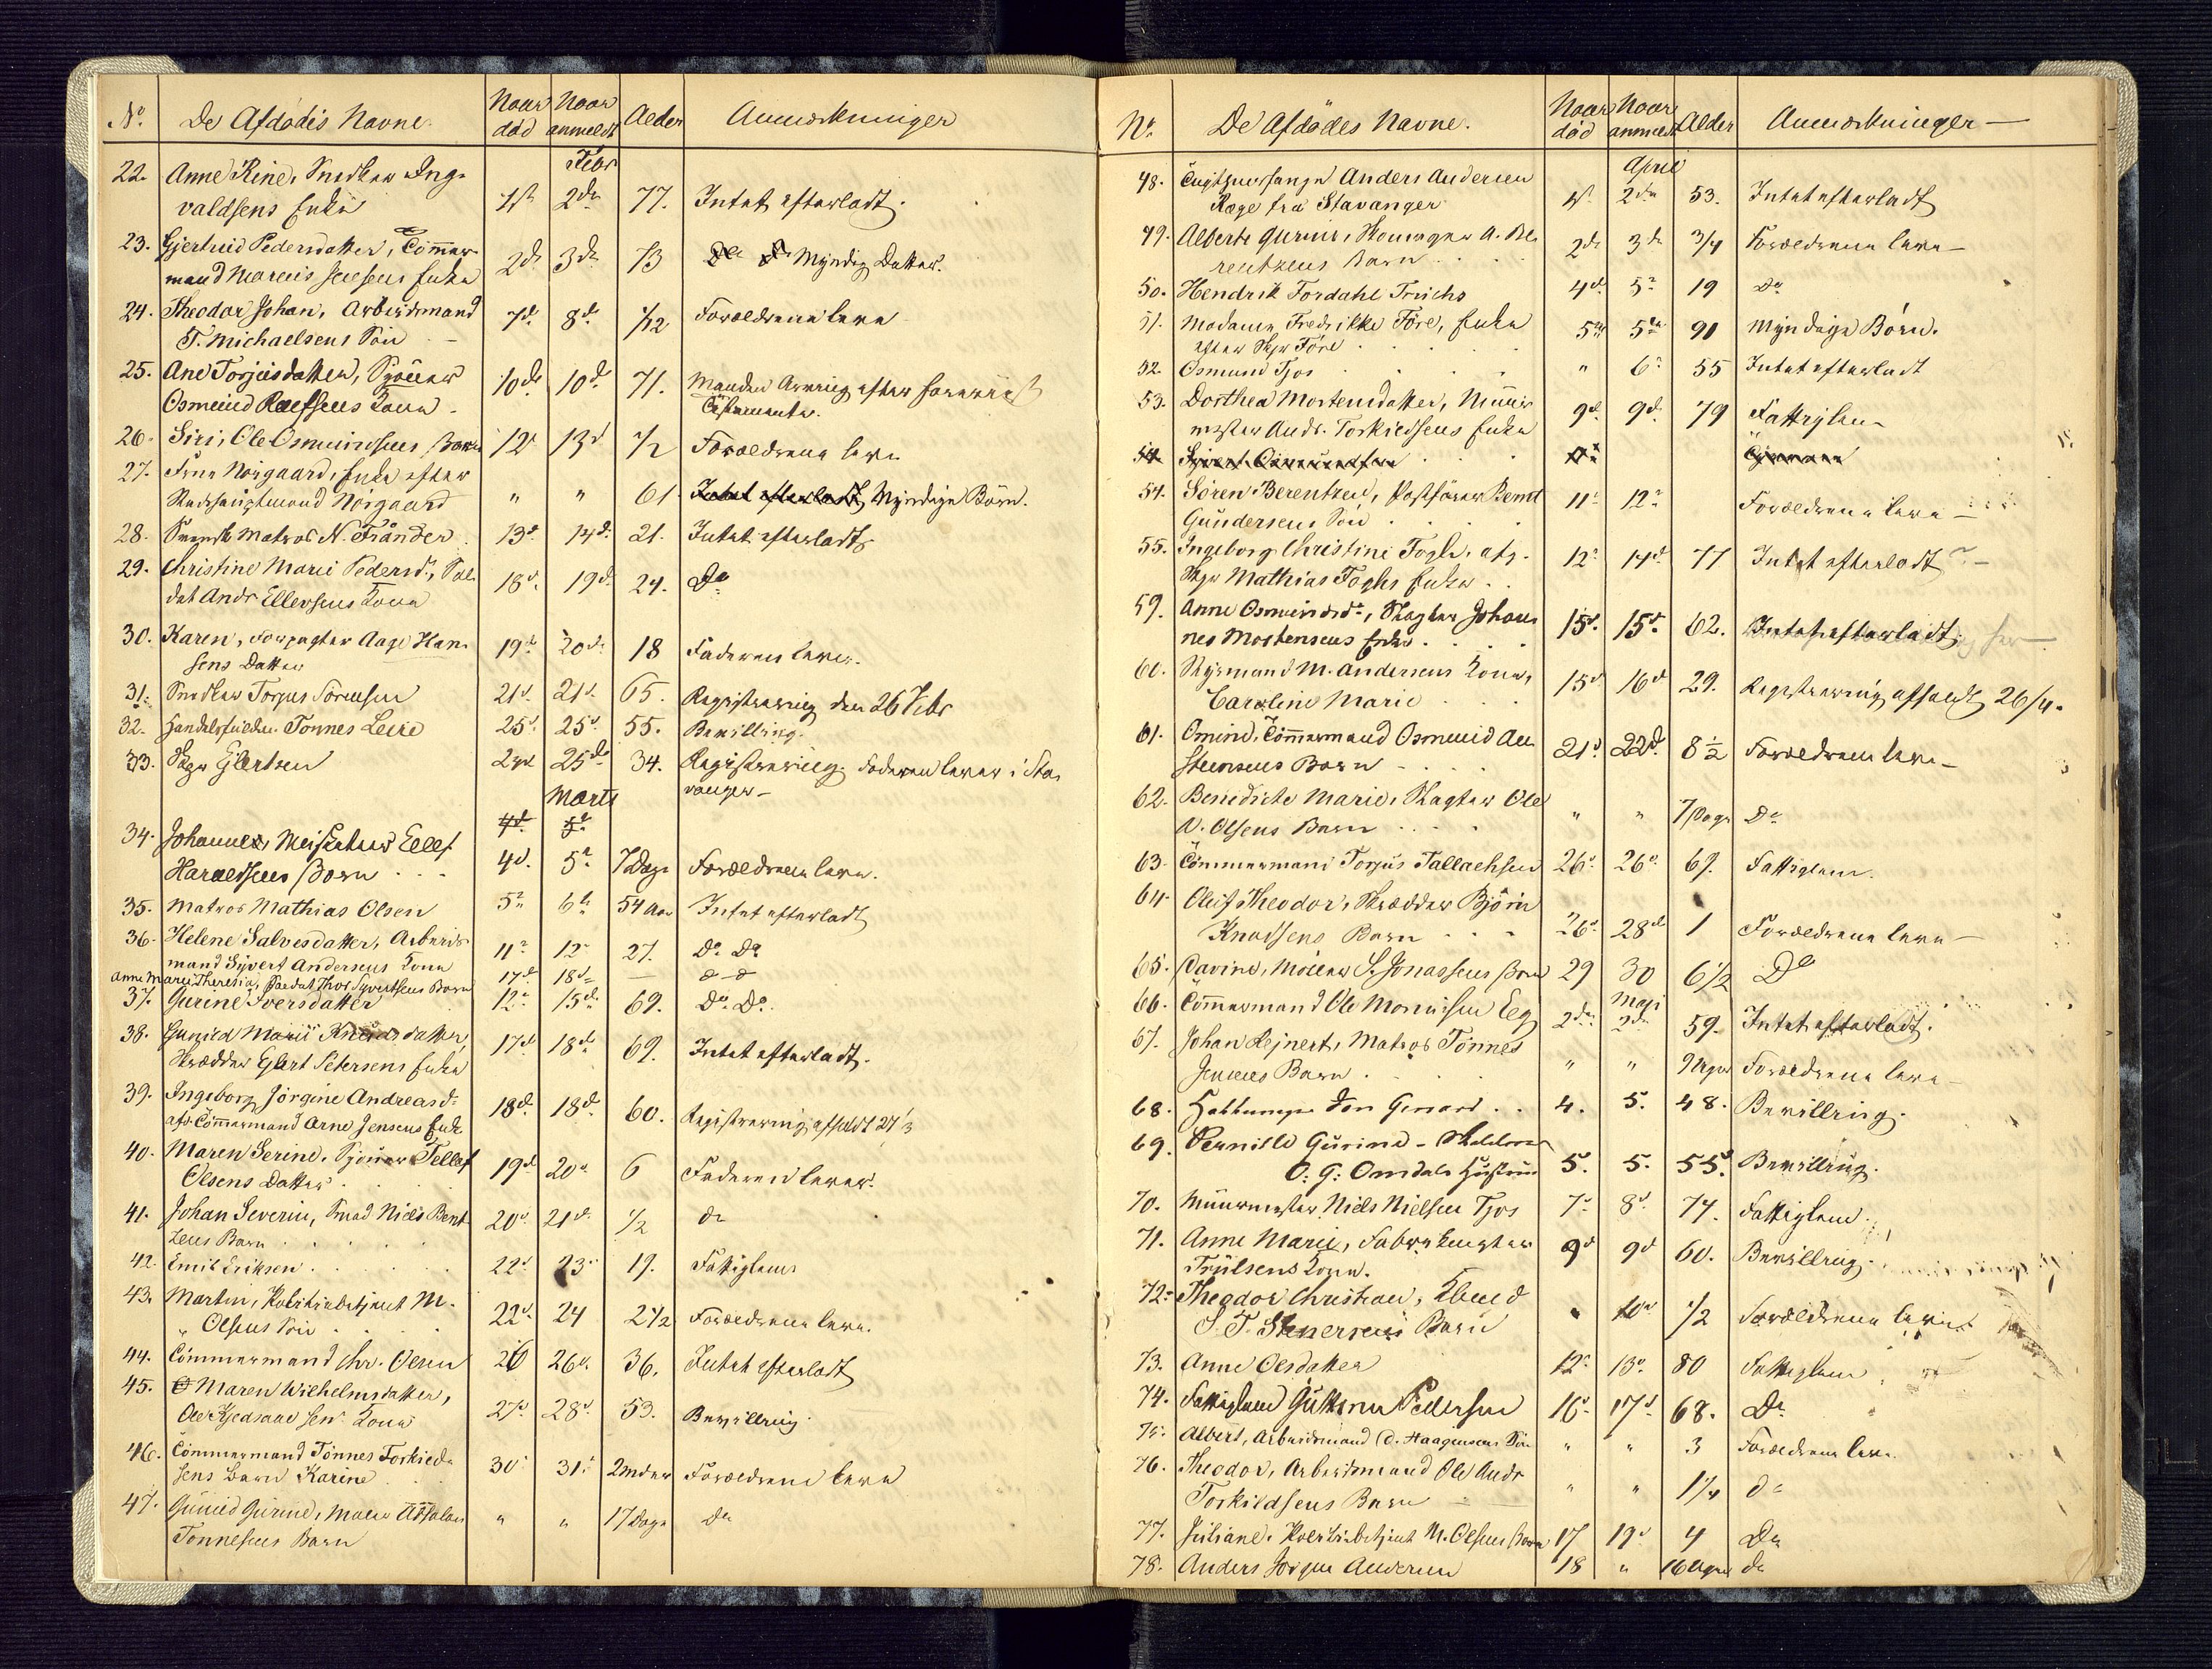 No. De Afdødes Navne. Naar død Naar anmeldt Alder Anmærkninger
Febr
22. Anne Rine, Snedker Ing-
valdsens Enke 1st 2den 77. Intet efterladt.
23. Gjertrud Pedersdatter, Tömmer-
mand Marcus Jensens Enke 2d 3de 73 Myndig Datter.
24. Theodor Johan, Arbeidsmand
T. Michaelsens Sön 7d. 8d. 7/12 Forældrene leve
25. Ane Torjusdatter, Sjouer
Osmund Roelfsens Kone 10de 10d. 71. Manden Arving efter
Testamente.
26. Siri, Ole Osmundsens Barn 12d 13d 1/2 Forældrene leve
27. Frue Nörgaard, Enke efter
Stadshauptmand Nörgaard " " 61. Intet efterladt, Myndige Börn.
28. Svensk Matros N. Fränder 13d 14d. 21. Intet efterladt
29. Christine Marie Pedersd., Sol-
dat Andr Ellefsens Kone 18d. 19d. 24. Do
30. Karen, Forpagter Aage Han-
sens Datter 19d 20d. 18 Faderen lever.
31. Snedker Torjus Törresen 21d. 21d. 65. Registrering den 26 Febr
32. Handelsfuldm. Tönnes Leire 25d. 25d. 55. Bevilling.
33. Skpr Gjertsen 23d 25de 34. Registrering. Faderen lever i Sta-
vanger
Marts
4d. 5d
34. Johannes, Meiselaer Ellef
Haraldsens Barn 4d. 5d 7 Dage Forældrene leve.
35. Matros Mathias Olsen 5d 6d 54 Aar Intet efterladt
36. Helene Salvesdatter, Arbeids-
mand Sivert Andersens Kone 11d 12d 27. Do Do
Anne Marie Theresia, Soldat Thor Syvertsens Barn 17d 18d — d d
37. Gurine Iversdatter 12d 15d. 69. Do Do.
38. Gunild Marie Knudsdatter,
Skrædder Eglert Petersens Enke 17d 18d. 69. Intet efterladt.
39. Ingeborg Jörgine Andreasd.
afd. Tömmermand Arne Jensens Enke 18d. 18d. 60. Registrering afholdt 27/3
40. Maren Serine, Sjouer Tellef
Olsens Datter 19d 20d 6 Faderen lever.
41. Johan Severin, Smed Niels Bent-
zens Barn 20d. 21d. 1/2 do
42. Emil Eriksen 22d. 23d 19. Fattiglem
43. Martin, Politibetjent M.
" Olsens Sön 22d. 24 2 1/2 Forældrene leve.
44. Tömmermand Chr. Olsen 26 26d. 36. Intet efterladt
45. Maren Wilhelmsdatter,
Ole Kjedsaae sen. Kone 27d 28d. 53. Bevilling
46. Tömmermand Tönnes Torkild-
sens Barn Karine 30d 31d 2 Mdr Forældrene leve
47. Gunild Gurine, Maler Absalon
Tönnesens Barn " " 17 Dage do
No. De Afdødes Navne. Naar død Naar anmeldt Alder Anmærkninger
April
48. Tugthusfange Anders Andersen
Ræge fra Stavanger 1st 2den 53. Intet efterladt
49. Alberte Gurine, Styrmand A. Be-
rentzens Barn 2de 3de 3/4 Forældrene leve
50. Hendrik Fordahl Truchs 4d. 5d 19 Do
51. Madame Fredrikke Före, Enke
efter Skpr Före 5te 5te 90 Myndige Börn.
52. Osmund Tjos " 6d 55 Intet efterladt
53. Dorthea Mortensdatter, Muur-
mester Andr. Torkildsens Enke 9d. 9d. 79 Fattiglem
54. Sivert Osmundsen
54. Sören Berentzen, Postförer Bernt
Gundersens Sön 11d 12d Forældrene leve
55. Ingeborg Christine Fogh, afg.
Skpr Mathias Foghs Enke 12d 14d 77 Intet efterladt
59. Anne Osmundsd., Slagter Johan-
nes Mortensens Enke 15d. 15d. 62. Intet efterladt.
60. Styrmand M. Andersens Kone,
Caroline Marie 15d 16d 29. Registrering afholdt 26/4.
61. Omine, Tömmermand Osmund An-
stensens Barn 21d 22d. 8 1/2 Forældrene leve
62. Benedicte Marie, Slagter Ole
N. Olsens Barn " " 7 Dage Do
63. Tömmermand Torjus Tallachsen 26d 26d 69. Fattiglem.
64. Oluf Theodor, Skrædder Björn
Knudsens Barn 26d 28d 1 Forældrene leve
65. Davine, Möller S. Jonassens Barn 29 30 6 1/2 Do
Mai
66. Tömmermand Ole Monsisen Eeg 2den 2den 59. Intet efterladt.
67. Johan Rejnert, Matros Tönnes
Jensens Barn " " Forældrene leve
68. Jon Genard 4. 5. 48. Bevilling.
69. Pernille Gurine
O. G. Omdals Hustru 5. 5. 55. Bevilling.
70. Muurmester Niels Nielsen Tjos 7d 8d. 74. Fattiglem.
71. Anne Marie,
Trulsens Kone. 9d 9d 60. Bevilling.
72. Theodor Christian,
S. T. Stenersens Barn " 10d 1/2 Forældrene leve
73. Anne Olsdatter 12d 13d 80 Fattiglem
74. Fattiglem Guttorm Pedersen 16d. 17d 68. Do
75. Albert, Arbeidsmand C. Haagensens Sön " " 3 Forældrene leve.
76. Theodor, Arbeidsmand Ole Andr
Torkildsens Barn " " 1 1/4 do
77. Juliane, Politibetjent M. Olsens Barn 17 19d 4 Do
78. Anders Jörgen Andersen 18 " 16 Uger do